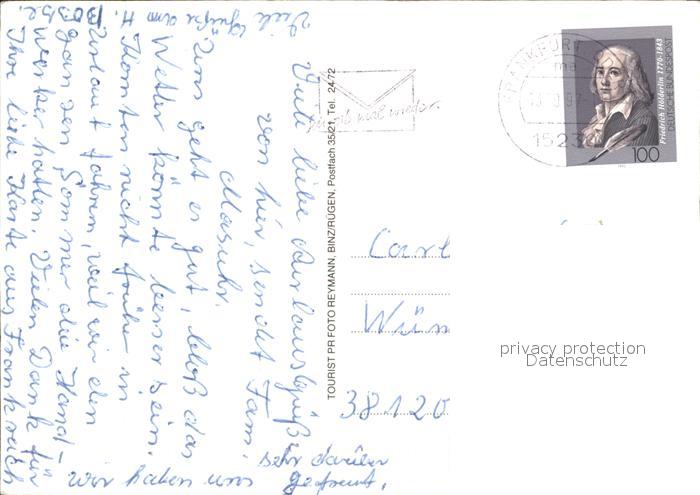 Viele liebe Urlaubsgrüße
von hier, sendet Fam.
Masuhr.
Uns geht es gut, bloß das
Wetter könnte besser sein.
Konnten nicht früher in
Urlaut fahren, weil wir den
ganzen Sommer die Hand-
werker hatten. Vielen Dank für
Ihre liebe Karte aus Frankreich
wir haben uns
sehr darüber
gefreut.
Viele Grüße am H.
TOURIST PR FOTO REYMANN, BINZ/RÜGEN, Postfach 35/21, Tel. 2472
mal wieder
FRANKFURT
1523
Friedrich Hölderlin 1770-1843
DEUTSCHE BUNDESPOST
100
Carl
Wüm
38120
privacy protection
Datenschutz